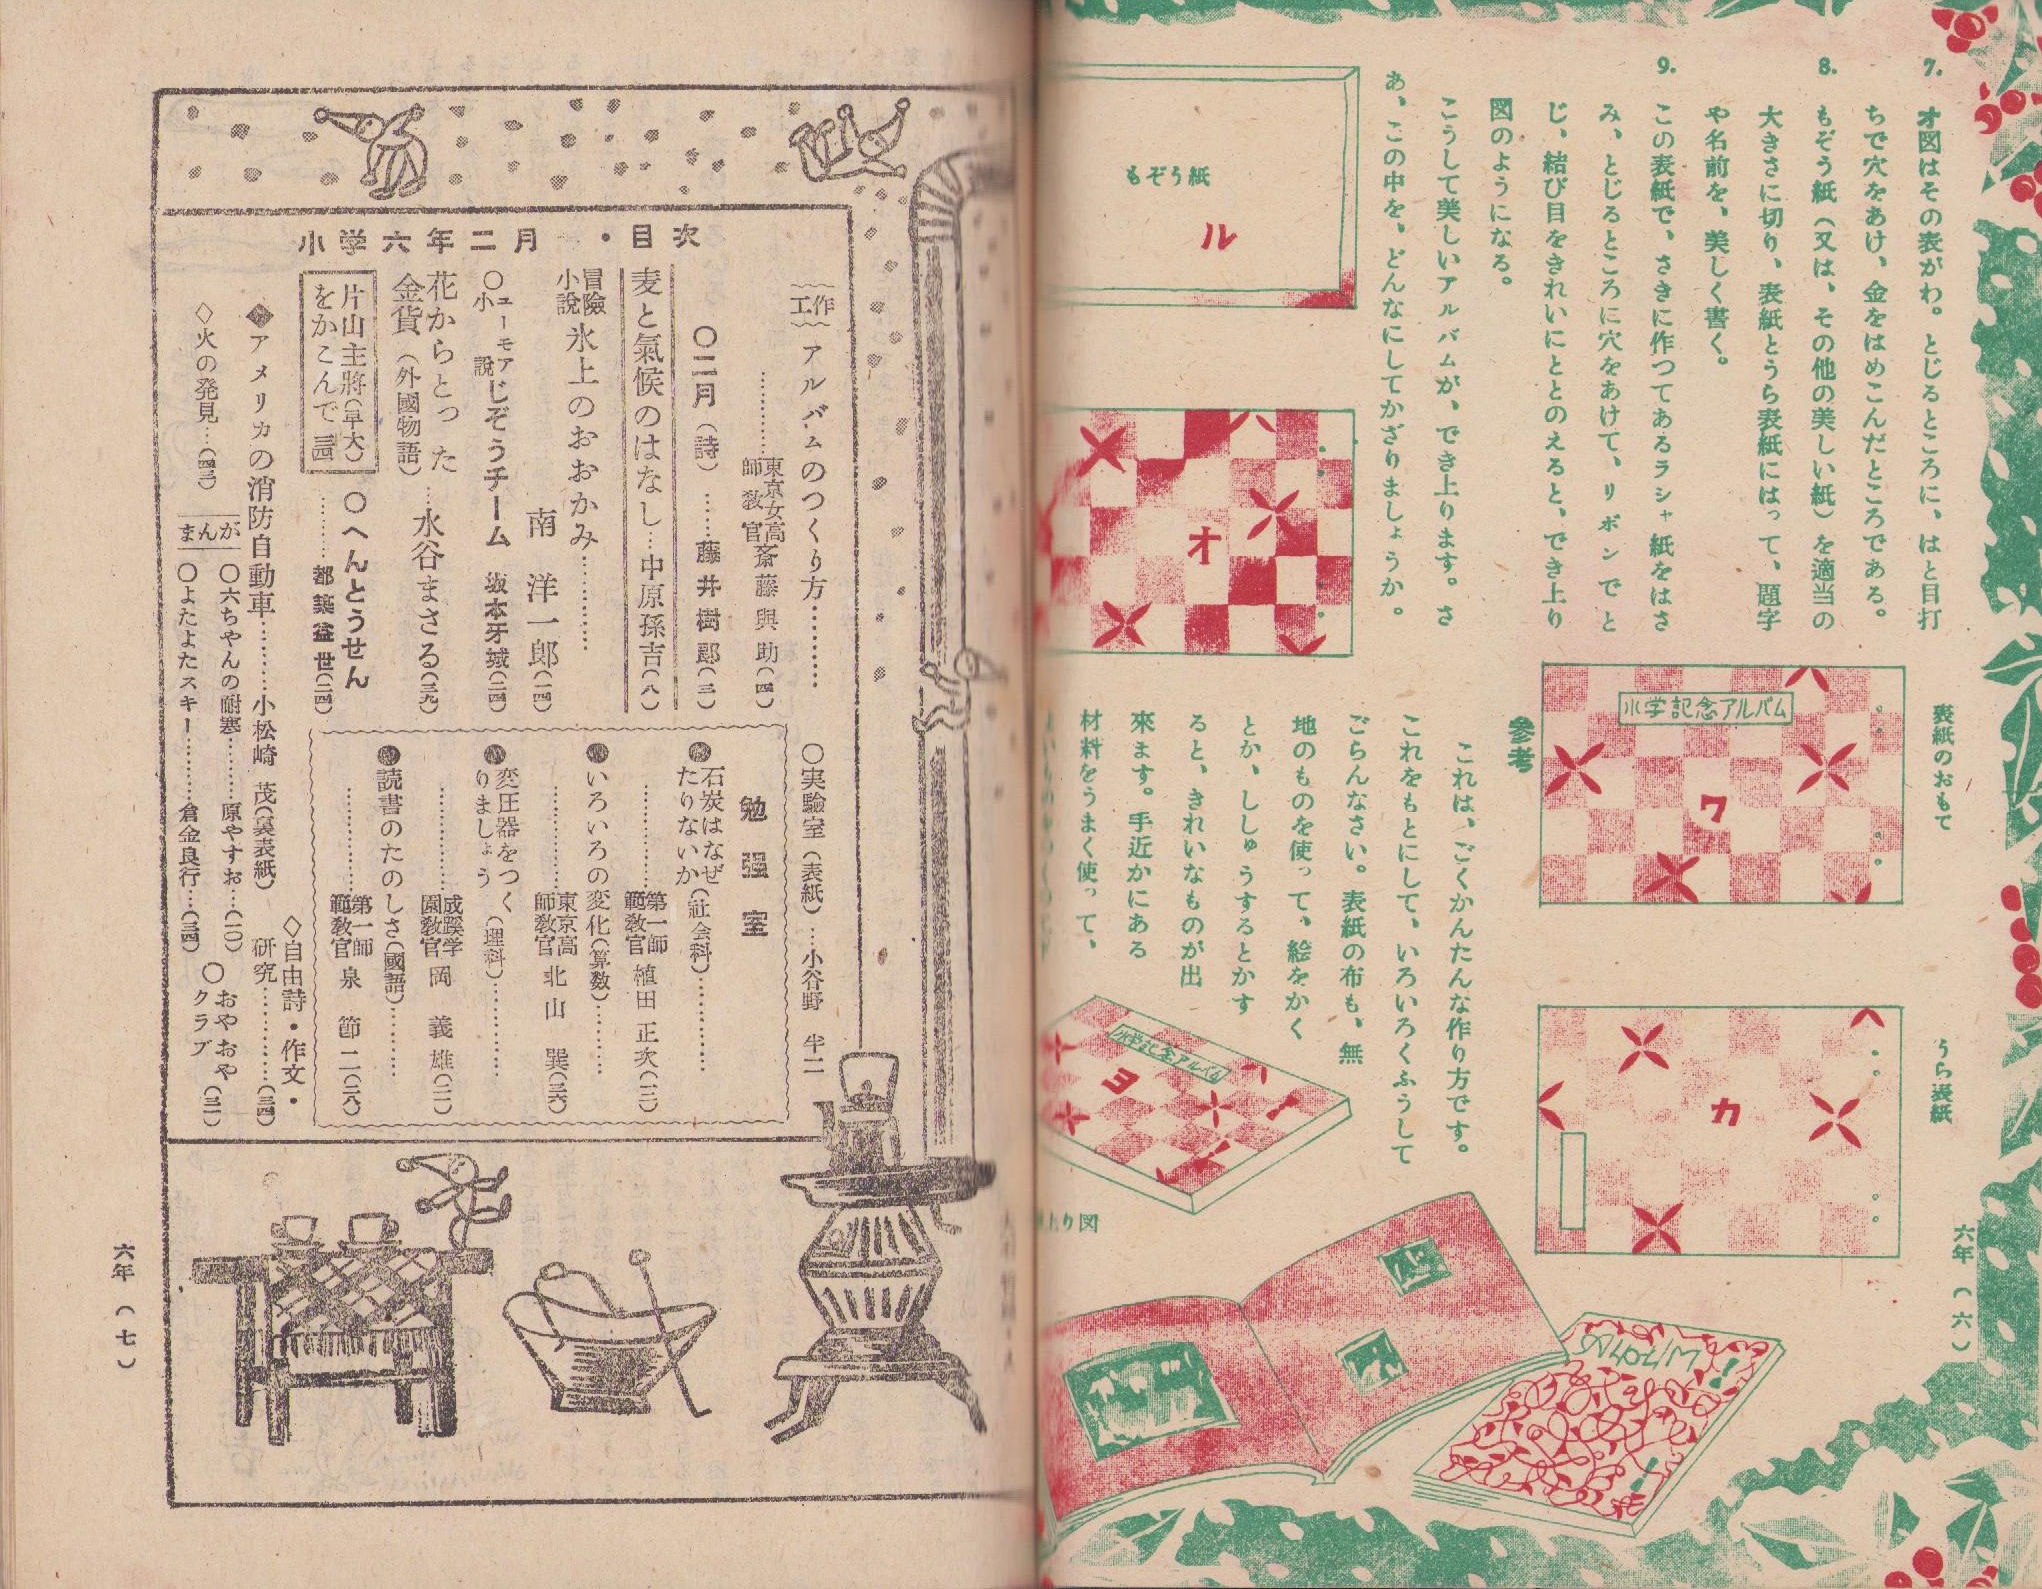 7.
オ図はその表がわ。とじるところに、はと目打
ちで穴をあけ、金をはめこんだところである。
8.
もぞう紙(又は、その他の美しい紙)を適当の
大きさに切り、表紙とうら表紙にはって、題字
や名前を、美しく書く。
9.
この表紙で、さきに作つてあるラシャ紙をはさ
み、とじるところに穴をあけて、リボンでと
じ、結び目をきれいにととのえると、でき上り
図のようになる。
こうして美しいアルバムが、でき上ります。さ
あ、この中を、どんなにしてかざりましょうか。
もぞう紙
ル
オ
表紙のおもて
小学記念アルバム
ワ
うら表紙
カ
参考
これは、ごくかんたんな作り方です。
これをもとにして、いろいろくふうして
ごらんなさい。表紙の布も、無
地のものを使って、絵をかく
とか、ししゅうするとかす
ると、きれいなものが出
來ます。手近かにある
材料をうまく使って、
小学記念アルバム
ヨ
上り図
六年(六)
小学六年二月・目次
工作
アルバムのつくり方………
…………東京女高師教官 斎藤與助(四)
〇二月(詩)……藤井樹郎(三)
麦と氣候のはなし…中原孫吉(八)
冒險小説 氷上のおおかみ…………
南洋一郎(一四)
〇ユーモア小説 じぞうチーム 坂本牙城(二四)
花からとった金貨(外國物語)…水谷まさる(三九)
片山主將(早大)をかこんで
〇へんとうせん
………都築益世(二四)
◆アメリカの消防自動車………小松崎茂(裏表紙)
◇火の発見…
〇実驗室(表紙)…小谷野半二
勉強室
●石炭はなぜたりないか(社会科)…………
…………第一師範敎官 植田正次(一二)
●いろいろの変化(算数)………
…………東京高師敎官 北山巽(三六)
●変圧器をつくりましょう(理科)…………
…………成蹊学園敎官 岡義雄(二二)
●読書のたのしさ(國語)………
…………第一師範敎官 泉節二(二八)
まんが
〇六ちやんの耐寒………原やすお…(一〇)
〇よたよたスキー………倉金良行…(三四)
◇自由詩・作文・研究…………(三四)
〇おやおやクラブ
六年(七)